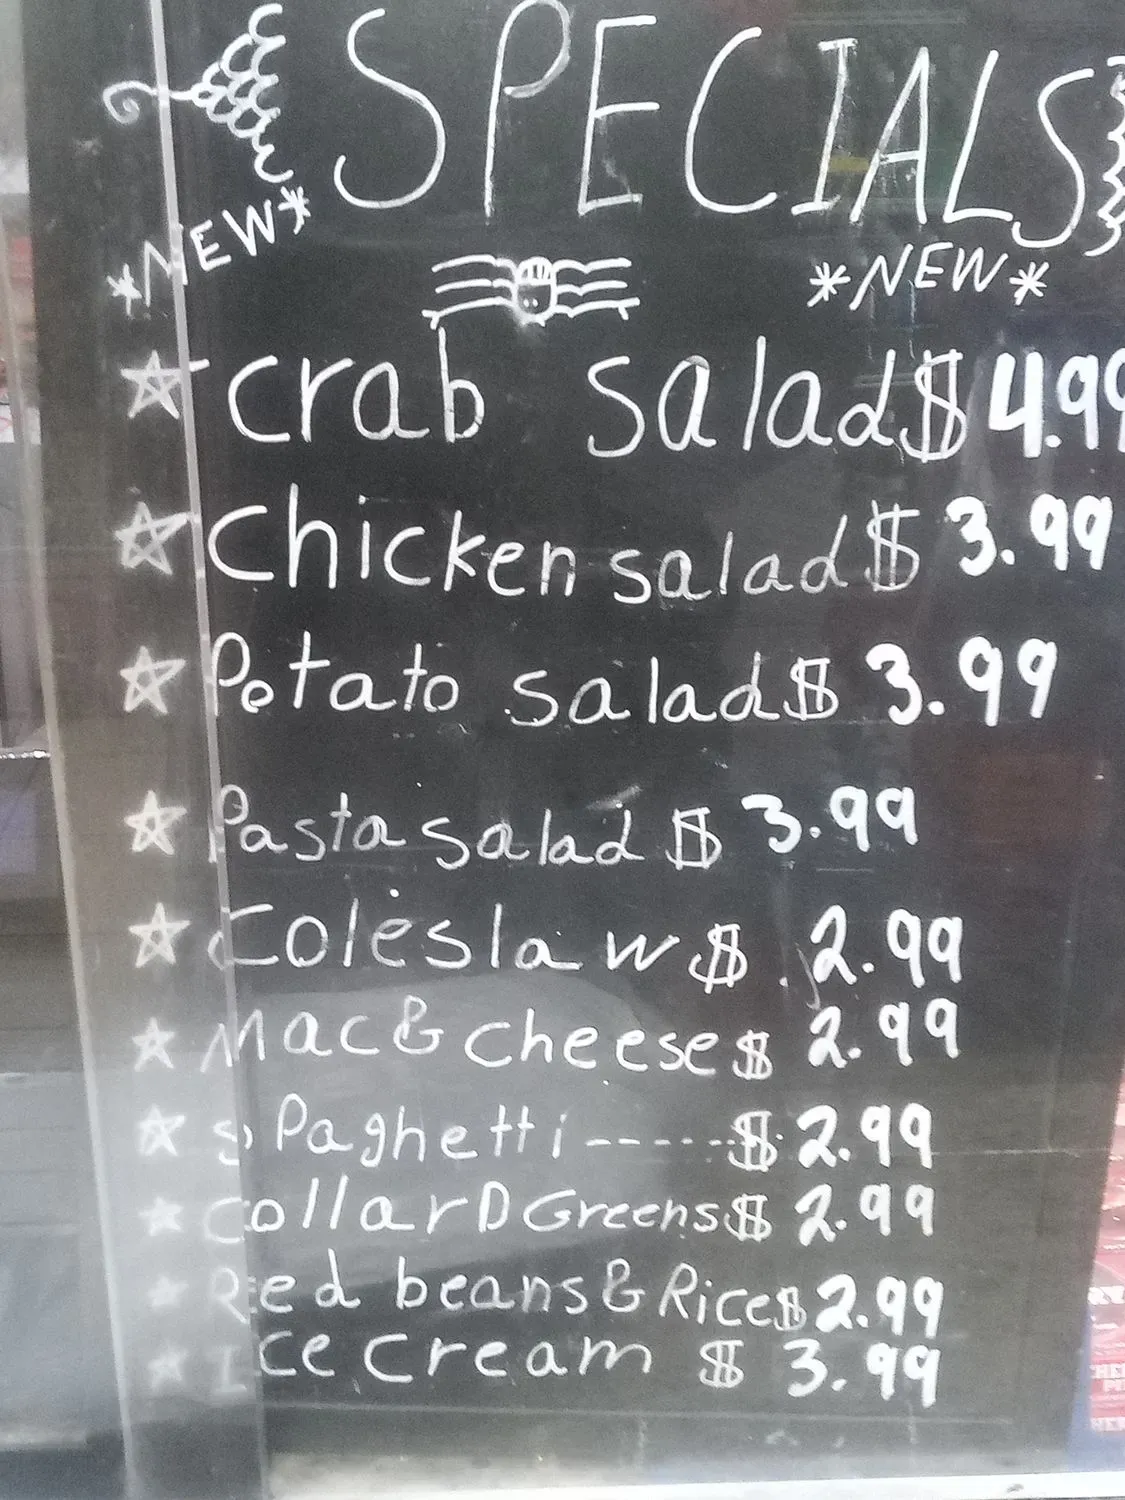 SPECIALS
*NEW*
*NEW*
crab salad $ 4.99
Chicken salad $ 3.99
Potato salad $ 3.99
Pasta salad $ 3.99
Coleslaw $ 2.99
Mac & cheese $ 2.99
sPaghetti ------ $ 2.99
collarD Greens $ 2.99
Red beans & Rice $ 2.99
Ice cream $ 3.99